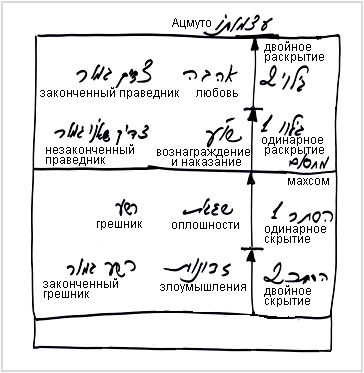 Ацмуто עצמותו
двойное
раскрытие
צדיק גמור אהבה גלוי 2
законченный праведник любовь
צדיק שאינו גמור שו"ע גלוי 1
незаконченный праведник вознаграждение и наказание одинарное раскрытие
מחסום
махсом
רשע שגגות הסתר 1
грешник оплошности одинарное скрытие
רשע גמור זדונות הסתר 2
законченный грешник злоумышления двойное скрытие